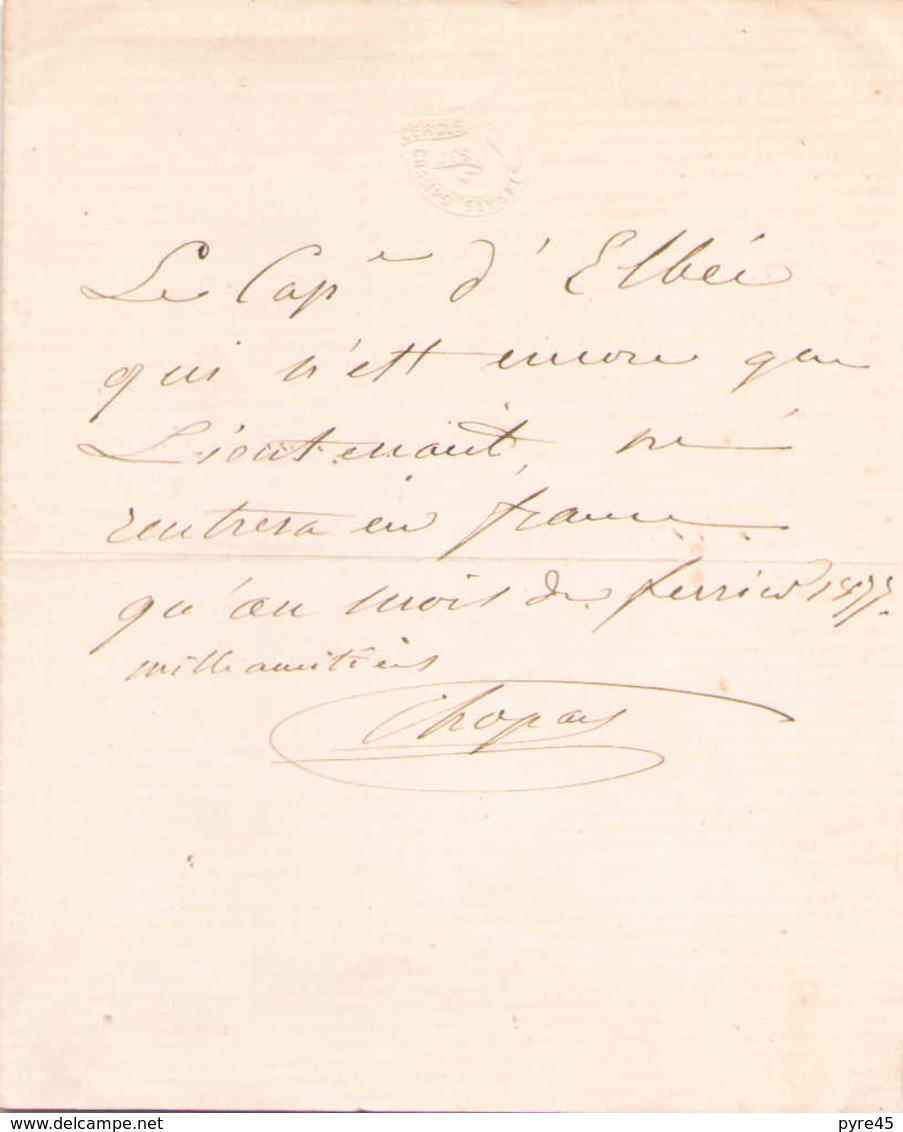 CERCLE
DES
CHAMPS ELYSEES
Le Cap^e d'Elbée
qui n'est encore que
Lieutenant, ne
rentrera en france
qu'au mois de fevrier 1877.
mille amitiés
delcampe.net
pyre45